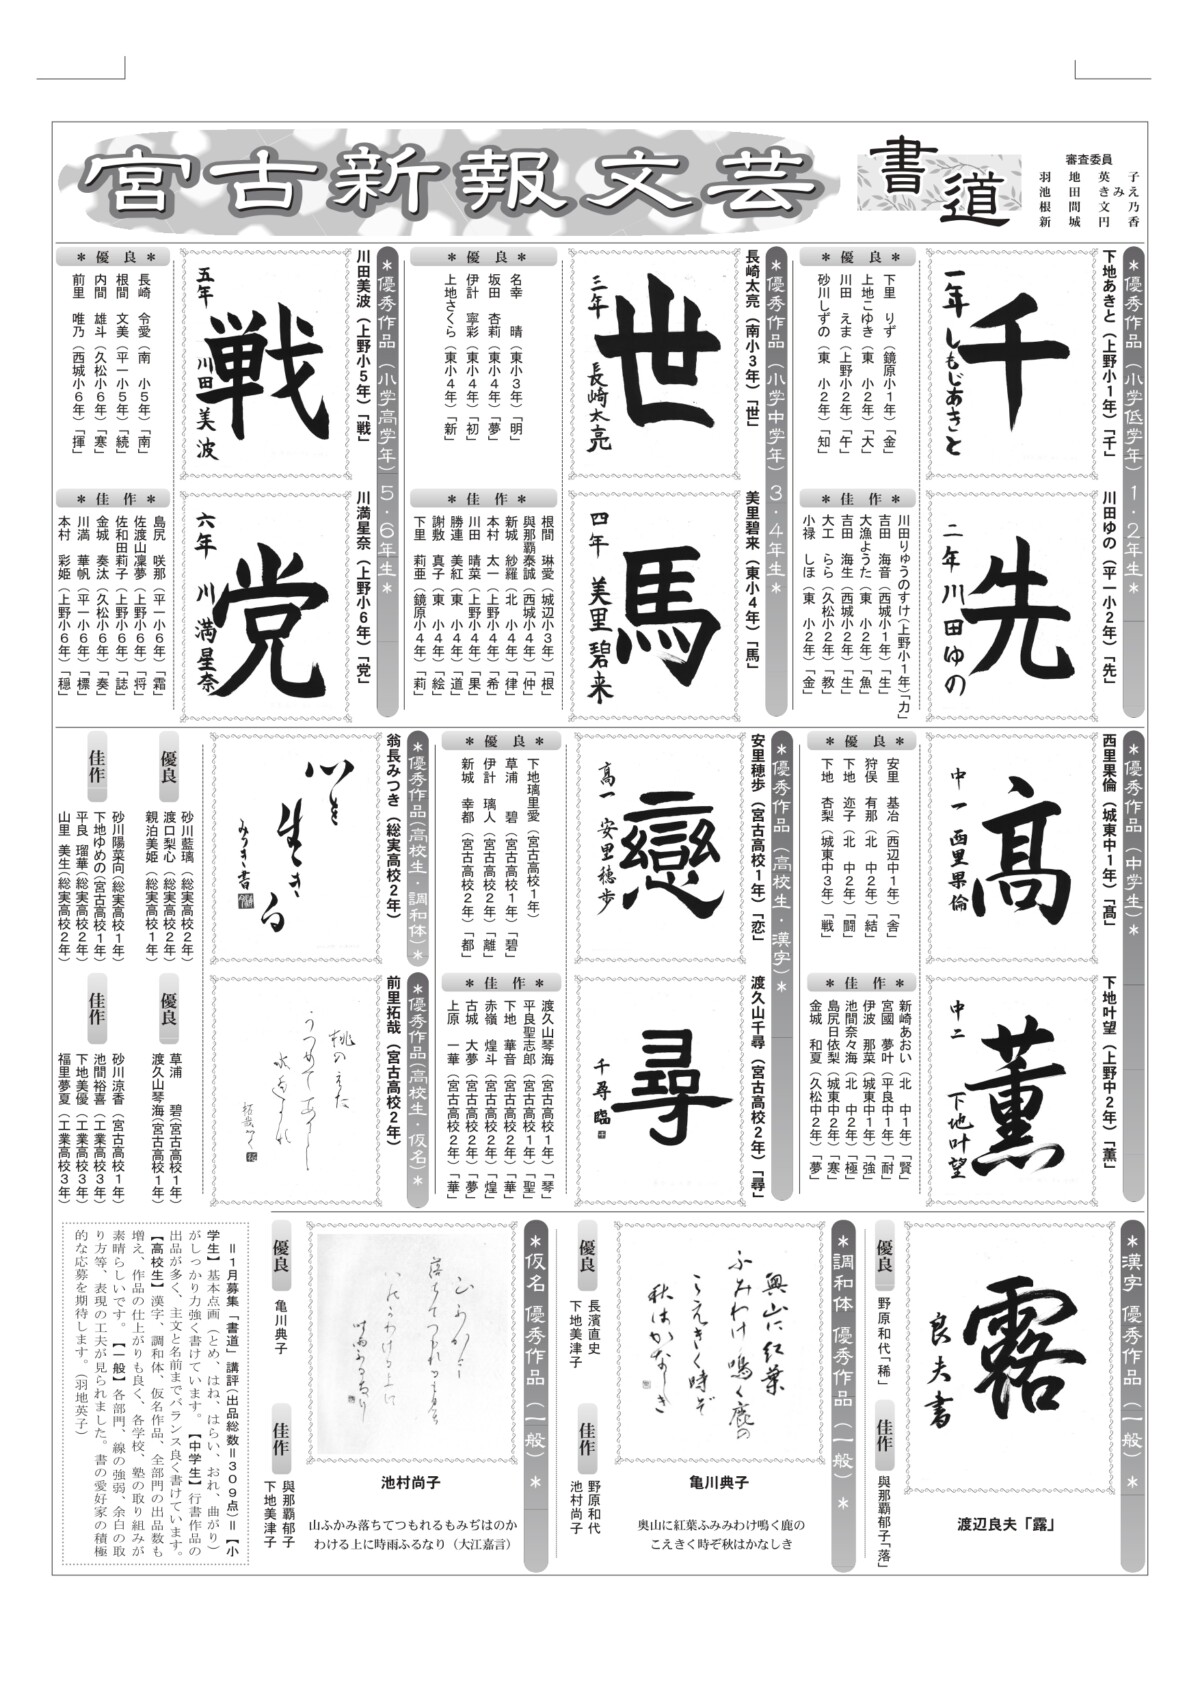 宮古新報文芸
書道
審査委員
羽地英子
池田きみえ
根間文乃
新城円香
＊優秀作品（小学低学年）１・２年生＊
下地あきと（上野小１年）「千」
千
一年しもじあきと
川田ゆの（平一小２年）「先」
先
二年川田ゆの
＊優良＊
下里　りず（鏡原小１年）「金」
上地こゆき（東　小２年）「大」
川田　えま（上野小２年）「午」
砂川しずの（東　小２年）「知」
＊佳作＊
川田りゅうのすけ（上野小１年）「力」
吉田　海音（西城小１年）「生」
大漁ようた（東　小２年）「魚」
吉田　海生（西城小２年）「生」
大工　らら（久松小２年）「教」
小禄　しほ（東　小２年）「金」
＊優秀作品（小学中学年）３・４年生＊
長崎太亮（南小３年）「世」
世
三年　長崎太亮
美里碧来（東小４年）「馬」
馬
四年　美里碧来
＊優良＊
名幸　　晴（東小３年）「明」
坂田　杏莉（東小４年）「夢」
伊計　寧彩（東小４年）「初」
上地さくら（東小４年）「新」
＊佳作＊
根間　琳愛（城辺小３年）「根」
與那覇泰誠（西城小４年）「仲」
新城　紗羅（北　小４年）「律」
本村　太一（上野小４年）「希」
川田　晴菜（上野小４年）「果」
勝連　美紅（東　小４年）「道」
謝敷　真子（東　小４年）「絵」
下里　莉亜（鏡原小４年）「莉」
＊優秀作品（小学高学年）５・６年生＊
川田美波（上野小５年）「戦」
戦
五年　川田美波
川満星奈（上野小６年）「党」
党
六年　川満星奈
＊優良＊
長崎　令愛（南　小５年）「南」
根間　文美（平一小５年）「続」
内間　雄斗（久松小６年）「寒」
前里　唯乃（西城小６年）「揮」
＊佳作＊
島尻　咲那（平一小６年）「霜」
佐渡山凜夢（上野小６年）「将」
佐和田莉子（上野小６年）「誌」
金城　奏汰（久松小６年）「奏」
川満　華帆（平一小６年）「標」
本村　彩姫（上野小６年）「穏」
＊優秀作品（中学生）＊
西里果倫（城東中１年）「高」
高
中一　西里果倫
下地叶望（上野中２年）「薫」
薫
中二　下地叶望
＊優良＊
安里　基冶（西辺中１年）「舎」
狩俣　有那（北　中２年）「結」
下地　迩子（北　中２年）「闘」
下地　杏梨（城東中３年）「戦」
＊佳作＊
新崎あおい（北　中１年）「賢」
宮國　夢叶（平良中１年）「耐」
伊波　那菜（城東中１年）「強」
池間奈々海（北　中２年）「極」
島尻日依梨（城東中２年）「寒」
金城　和夏（久松中２年）「夢」
＊優秀作品（高校生・漢字）＊
安里穂歩（宮古高校１年）「恋」
戀
高一　安里穂歩
渡久山千尋（宮古高校２年）「尋」
尋
千尋臨
＊優良＊
下地璃里愛（宮古高校１年）
草浦　　碧（宮古高校１年）「碧」
伊計　璃人（宮古高校２年）「離」
新城　幸都（宮古高校２年）「都」
＊佳作＊
渡久山琴海（宮古高校１年）「琴」
平良聖志郎（宮古高校１年）「聖」
下地　華音（宮古高校２年）「華」
赤嶺　煌斗（宮古高校２年）「煌」
古城　大夢（宮古高校２年）「夢」
上原　一華（宮古高校２年）「華」
＊優秀作品（高校生・調和体）＊
翁長みつき（総実高校２年）
心を
生きる
みつき書
優良
砂川藍璃（総実高校２年）
渡口梨心（総実高校２年）
親泊美姫（総実高校１年）
佳作
砂川陽菜向（総実高校１年）
下地ゆめの（宮古高校１年）
平良　瑠華（総実高校２年）
山里　美生（総実高校２年）
＊優秀作品（高校生・仮名）＊
前里拓哉（宮古高校２年）
優良
草浦　　碧（宮古高校１年）
渡久山琴海（宮古高校１年）
佳作
砂川涼香（宮古高校１年）
池間裕喜（工業高校３年）
下地美優（工業高校３年）
福里夢夏（工業高校３年）
＊漢字　優秀作品（一般）＊
露
良夫書
渡辺良夫「露」
優良
野原和代「稀」
佳作
與那覇郁子「落」
＊調和体　優秀作品（一般）＊
奥山に紅葉
ふみわけ鳴く鹿の
こえきく時ぞ
秋はかなしき
亀川典子
奥山に紅葉ふみみわけ鳴く鹿の
こえきく時ぞ秋はかなしき
優良
長濱直史
下地美津子
佳作
野原和代
池村尚子
＊仮名　優秀作品（一般）＊
池村尚子
山ふかみ落ちてつもれるもみぢはのか
わける上に時雨ふるなり（大江嘉言）
優良
亀川典子
佳作
與那覇郁子
下地美津子
＝１月募集「書道」講評（出品総数＝３０９点）＝【小
学生】基本点画（とめ、はね、はらい、おれ、曲がり）
がしっかり力強く書けています。【中学生】行書作品の
出品が多く、主文と名前までバランス良く書けています。
【高校生】漢字、調和体、仮名作品、全部門の出品数も
増え、作品の仕上がりも良く、各学校、塾の取り組みが
素晴らしいです。【一般】各部門、線の強弱、余白の取
り方等、表現の工夫が見られました。書の愛好家の積極
的な応募を期待します。（羽地英子）